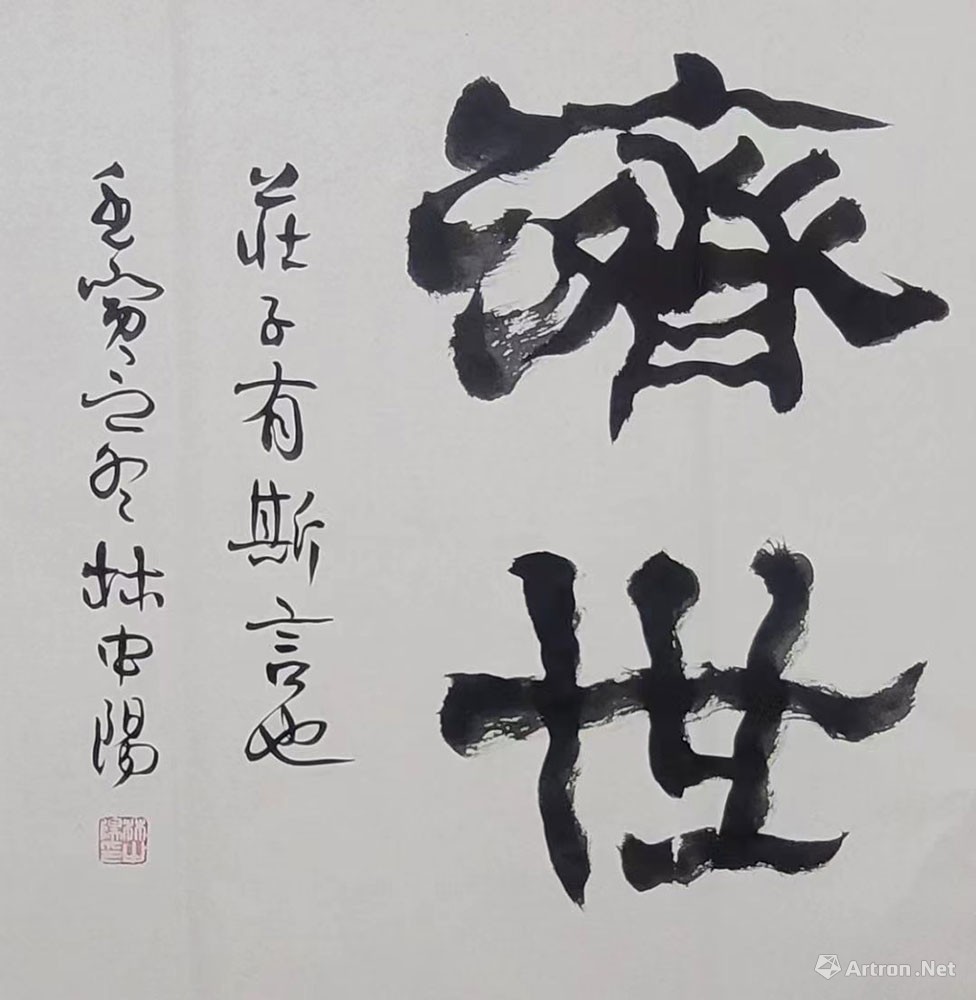 濟世
莊子有斯言也
壬寅之冬林中陽
Artron.Net